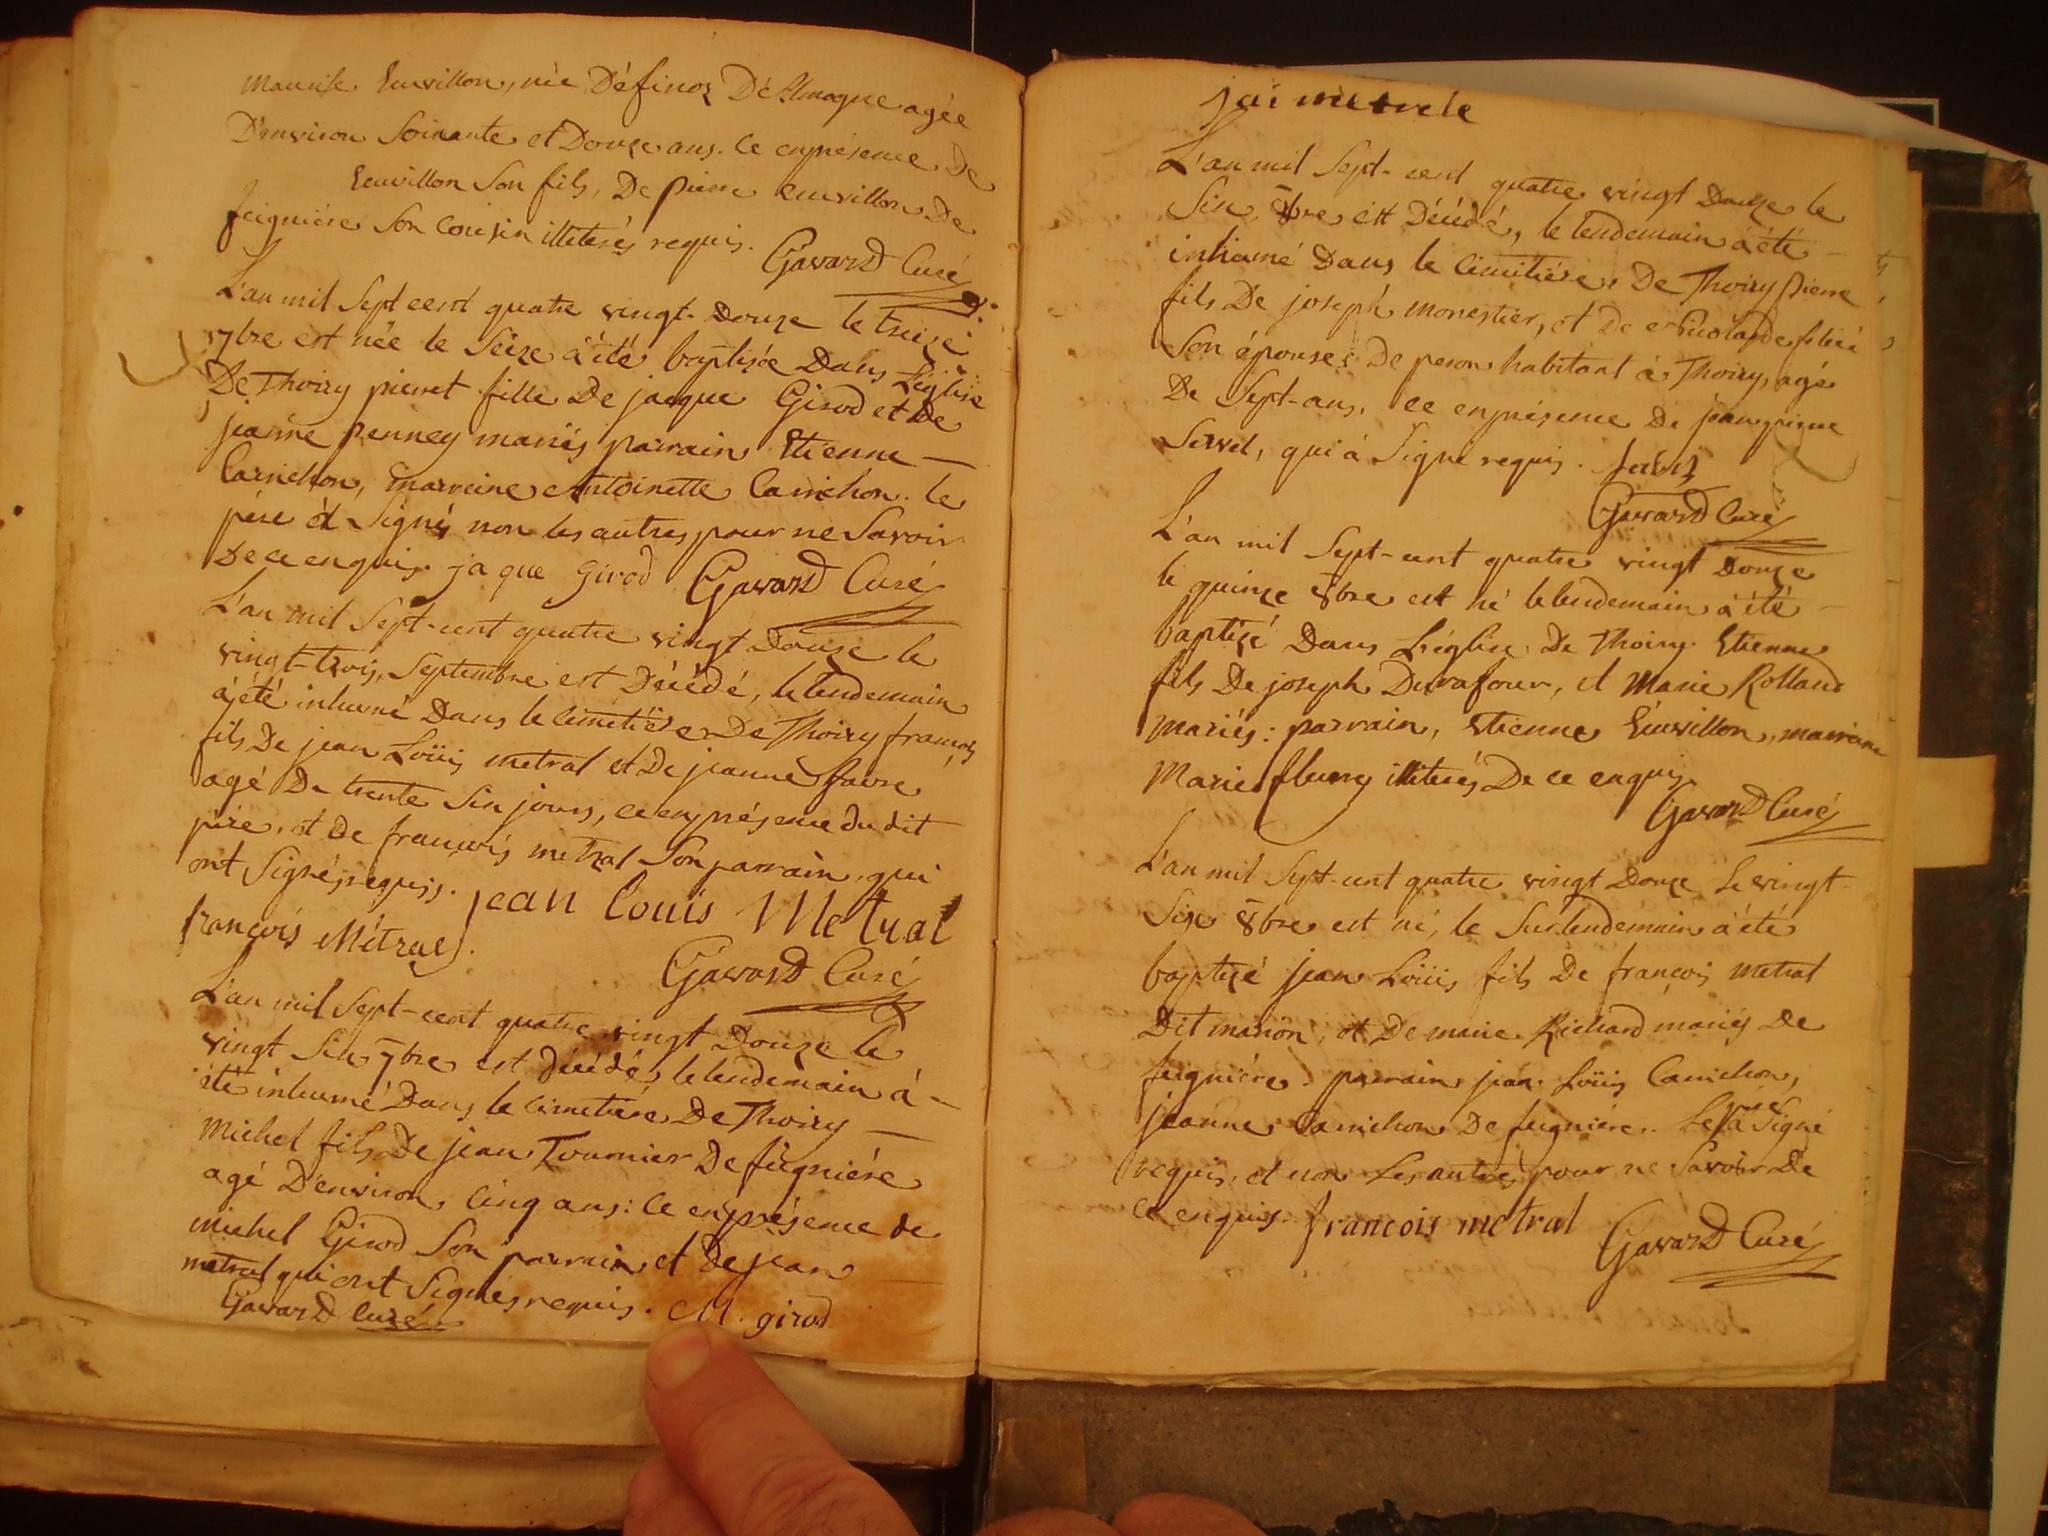 Emvillon, née Définoz D'Allmogne agée
D'environ Soixante et Douze ans. Ce enprésence De
Emvillon Son fils, De pierre emvillon De
feignière Son Cousin illiterés requis. Gavard Curé
L'an mil Sept cent quatre vingt-Douze le treize
7bre est née le Seize à été baptisée Dans L'église
De Thoiry pierret fille De jacque Girod et De
jeanne penney mariés parrain Etienne
Carrichon, marreine Antoinette Carrichon. le
père et Signés non les autres pour ne Savoir
De ce enquis. jaque Girod Gavard Curé
L'an mil Sept-cent quatre vingt Douze le
vingt-trois, Septembre est Décédé, le lendemain
à été inhumé Dans le cimetière De Thoiry françois
fils De jean Loüis metral et De jeanne favre
agé De trente Six jours, ce enprésence du dit
père, et De françois metral Son parrain, qui
ont Signés requis. jean louis Metral
françois Métral.
Gavard Curé
L'an mil Sept-cent quatre vingt Douze le
vingt Six 7bre est Décédé, le lendemain à
été inhumé Dans le cimetière De Thoiry
Michel fils De jean Tournier De feignière
agé D'environ, Cinq ans: Ce enprésence de
michel Girod Son parrain et De jean
metral qui ont Signés requis. M. girod
Gavard Curé
jai metrale
L'an mil Sept-cent quatre vingt Douze le
Six 8bre est Décédé, le lendemain à été
inhumé Dans le Cimitière De Thoiry pierre
fils De joseph monestier, et De
Son épouse: De peron habitant à Thoiry, agé
De Sept-ans, ce enprésence De
Servel, qui à Signé requis.
Gavard Curé
L'an mil Sept-cent quatre vingt Douze
le quinze 8bre est né le lendemain à été
baptizé Dans L'église De Thoiry Etienne
fils De joseph Durafour, et Marie Rolland
Mariés: parrain, Etienne Emvillon, marreine
Marie fleury illiterés De ce enquis.
Gavard Curé
L'an mil Sept-cent quatre vingt Douze Le vingt
Six 8bre est né, le Surlendemain à été
baptizé jean Loüis fils De françois metral
Dit manon, et De marie Richard mariés De
feignière parrain jean Loüis Carrichon,
jeanne Carrichon De feignière. Le père à Signé
requis, et non Les autres pour ne Savoir De
Ce enquis. francois metral Gavard Curé